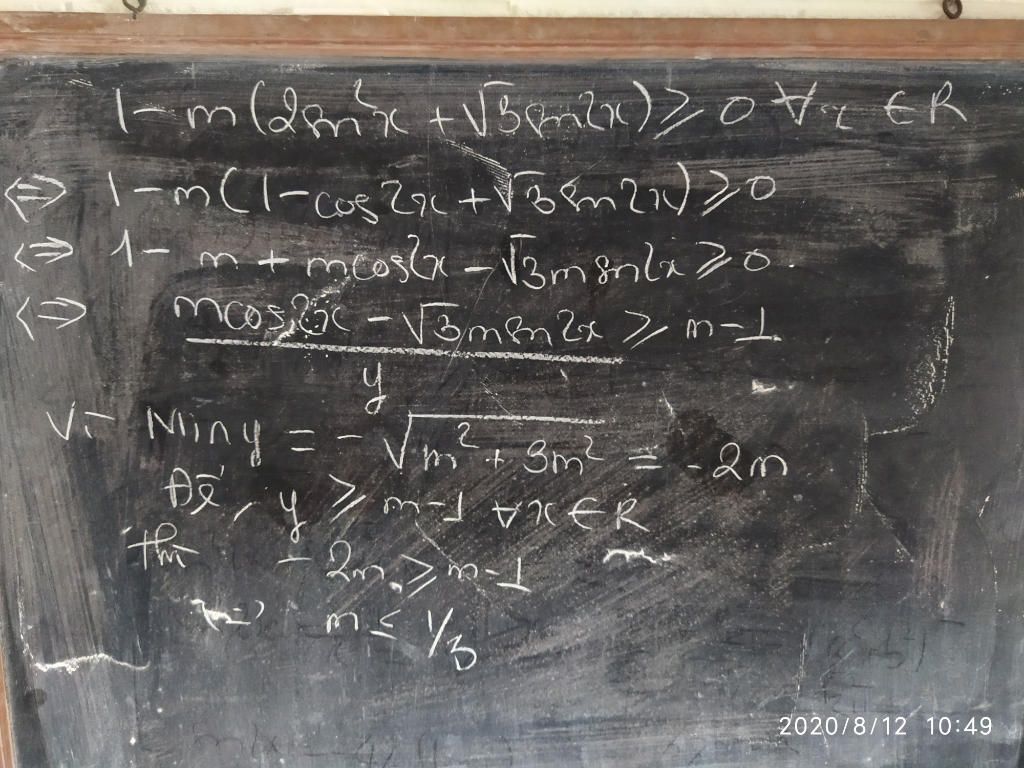 1 - m(2sin²x + √3sin2x) ≥ 0 ∀x ∈ R
⇔ 1 - m(1 - cos2x + √3sin2x) ≥ 0
⇔ 1 - m + mcos2x - √3msin2x ≥ 0
⇔ mcos2x - √3msin2x ≥ m-1
y
Vì Min y = -√m² + 3m² = -2m
Để y ≥ m-1 ∀x ∈ R
thì -2m ≥ m-1
⇔ m ≤ 1/3
2020/8/12 10:49